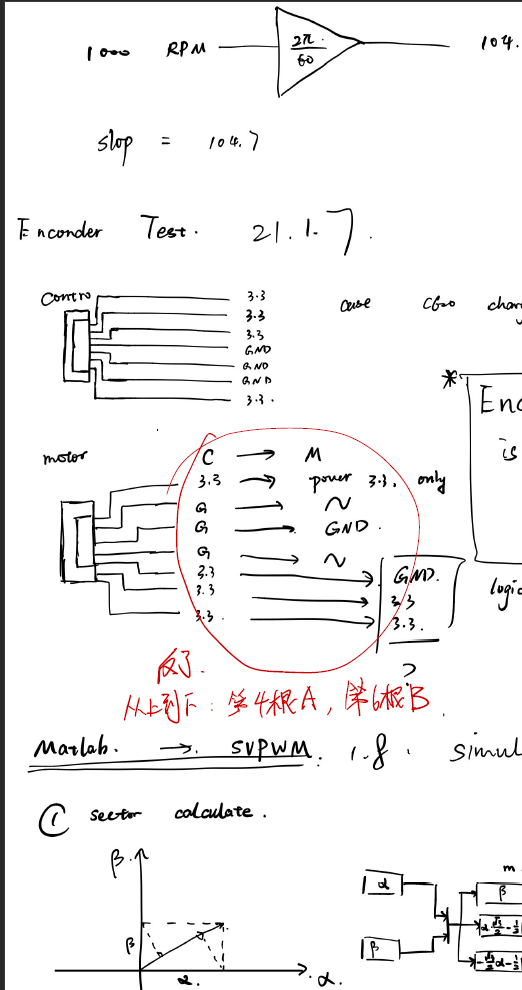 1000 RPM 2π/60 104.
slop = 104.7
Enconder Test. 21.1.7.
Contro
3.3
3.3
3.3
GND
GND
GND
3.3.
case
*
Enc
is
motor
C → M
3.3 → power 3.3. only
G → ~
G → GND.
G → ~
3.3 → GND.
3.3 → 3.3
3.3. → 3.3.
?
logic
反了.
从上到下: 第4根A, 第6根B.
Matlab. → SVPWM. 1.8. simul
① sector calculate.
β
β
α.
α.
α
β
m
β